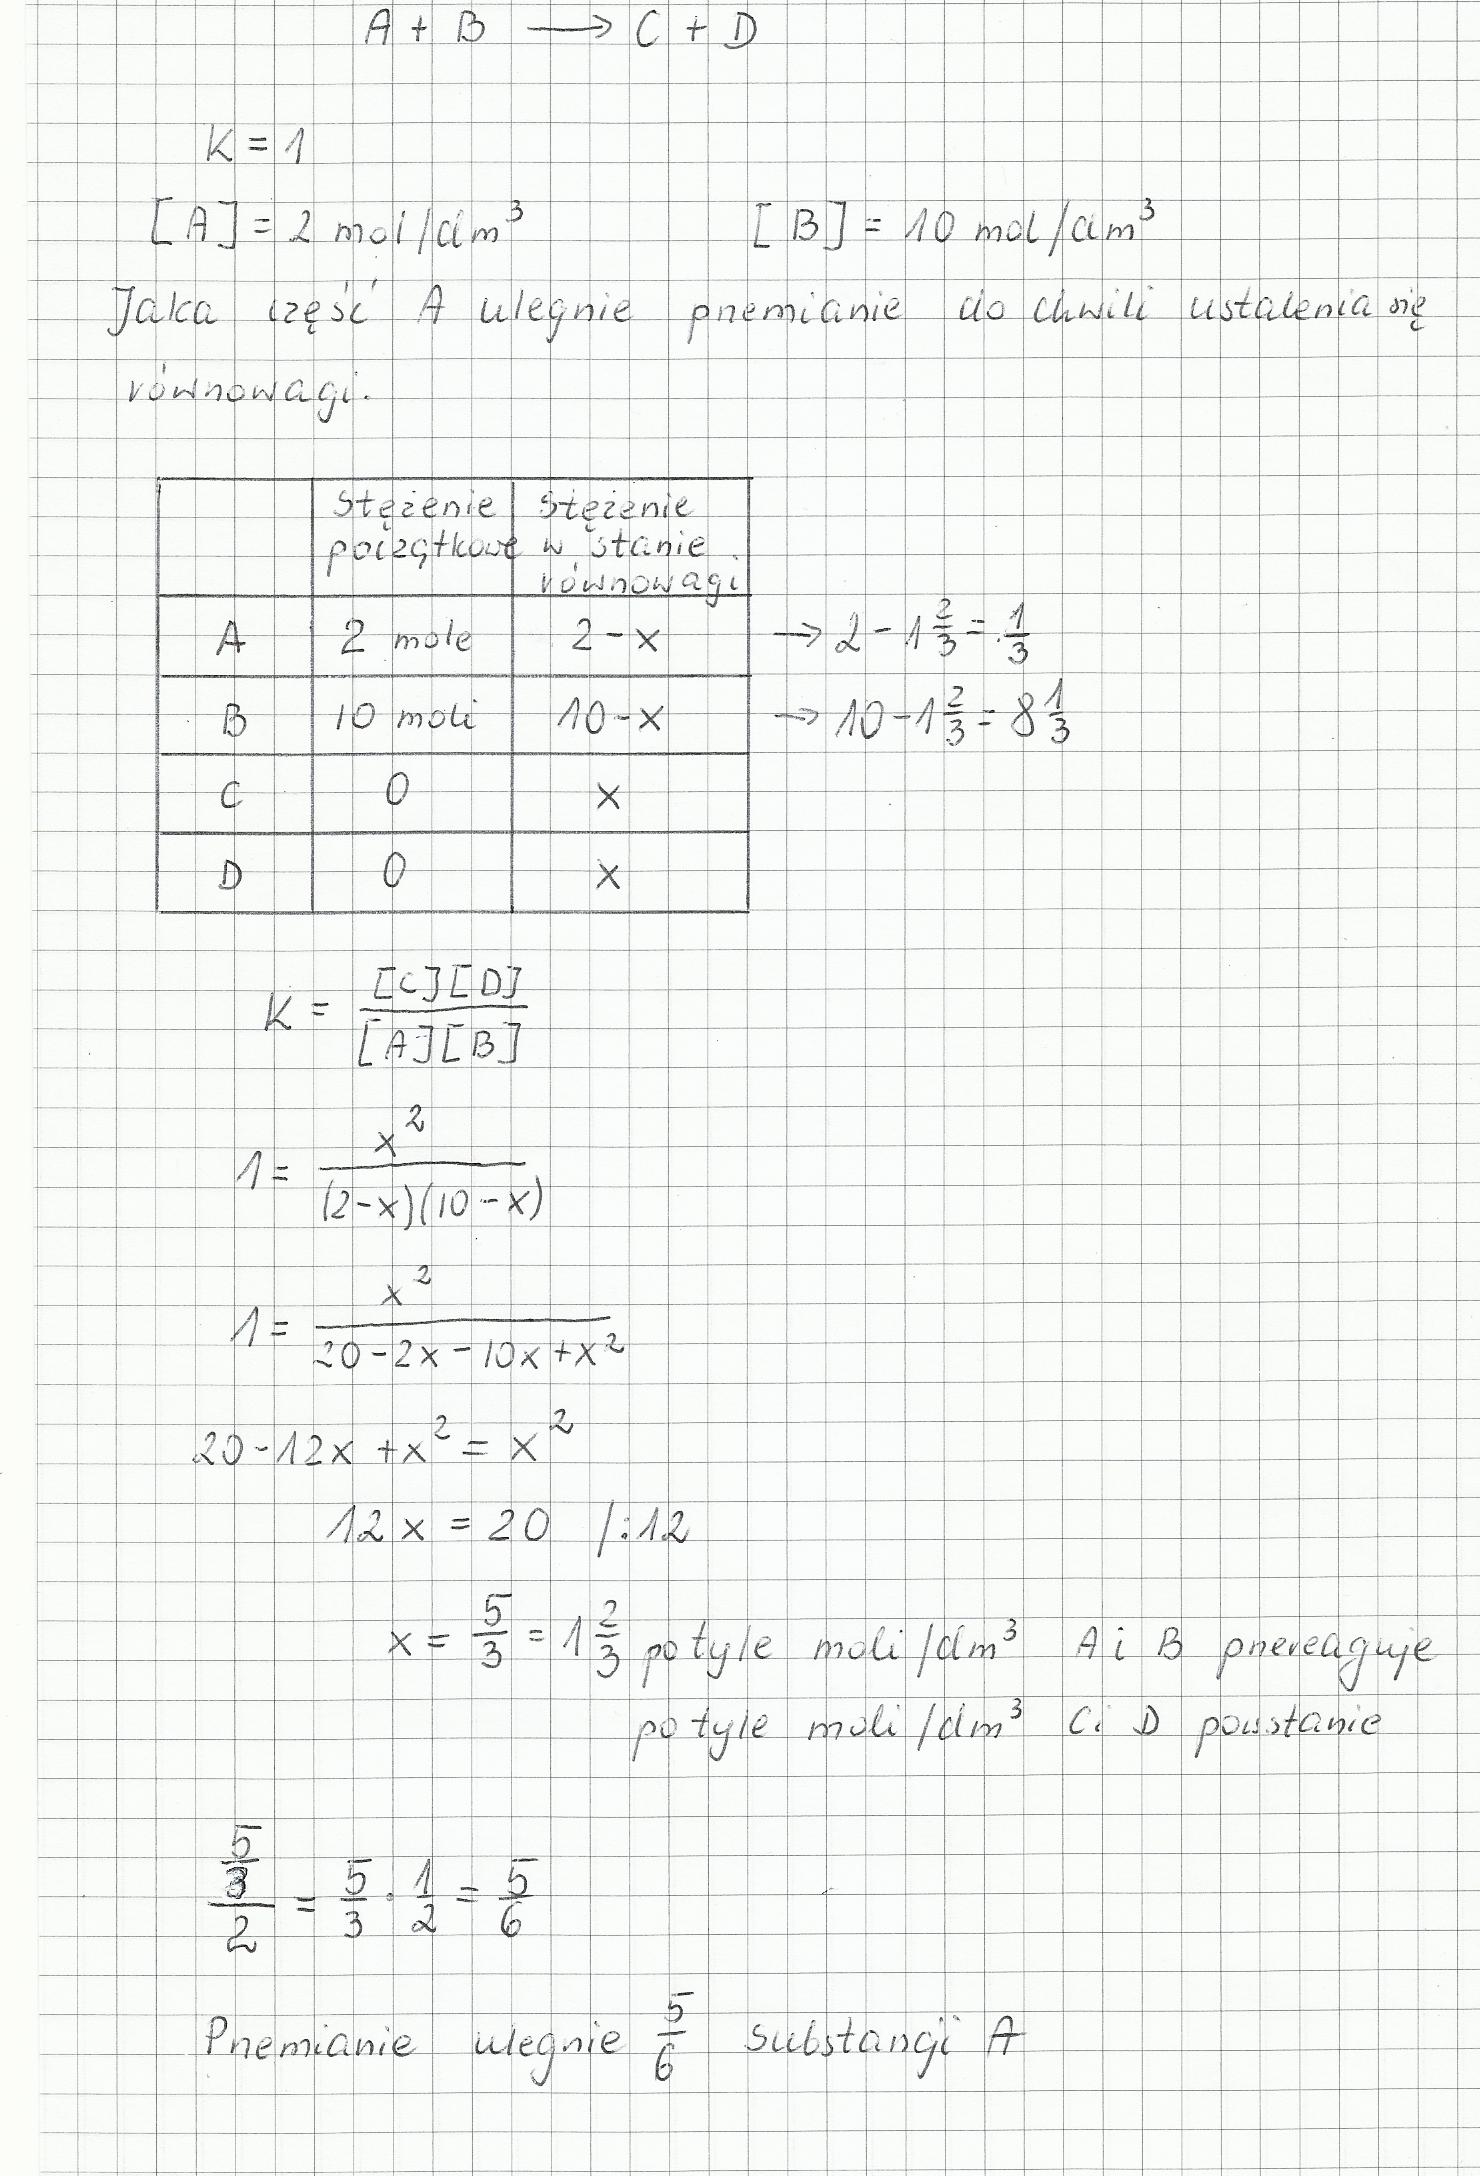 A + B → C + D
K = 1
[A] = 2 mol/dm³ [B] = 10 mol/dm³
Jaka część A ulegnie przemianie do chwili ustalenia się
równowagi.
Stężenie początkowe Stężenie w stanie równowagi
A 2 mole 2 - x → 2 - 1 2/3 = 1/3
B 10 moli 10 - x → 10 - 1 2/3 = 8 1/3
C 0 x
D 0 x
K = [C][D] / [A][B]
1 = x² / (2-x)(10-x)
1 = x² / 20-2x-10x+x²
20-12x+x² = x²
12x = 20 /:12
x = 5/3 = 1 2/3 po tyle moli/dm³ A i B przereaguje
po tyle moli/dm³ C i D powstanie
5/3 / 2 = 5/3 · 1/2 = 5/6
Przemianie ulegnie 5/6 substancji A